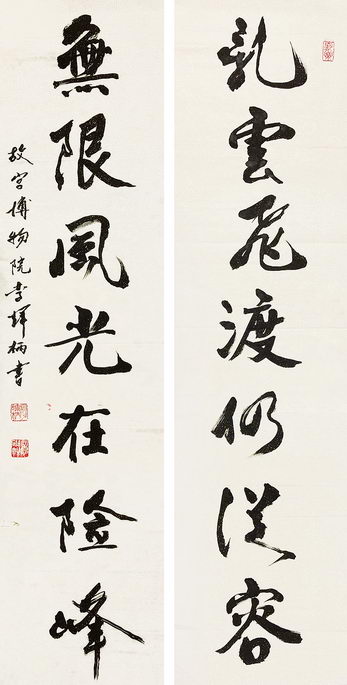 乱雲飛渡仍従容
無限風光在险峰
故宫博物院李輝柄書